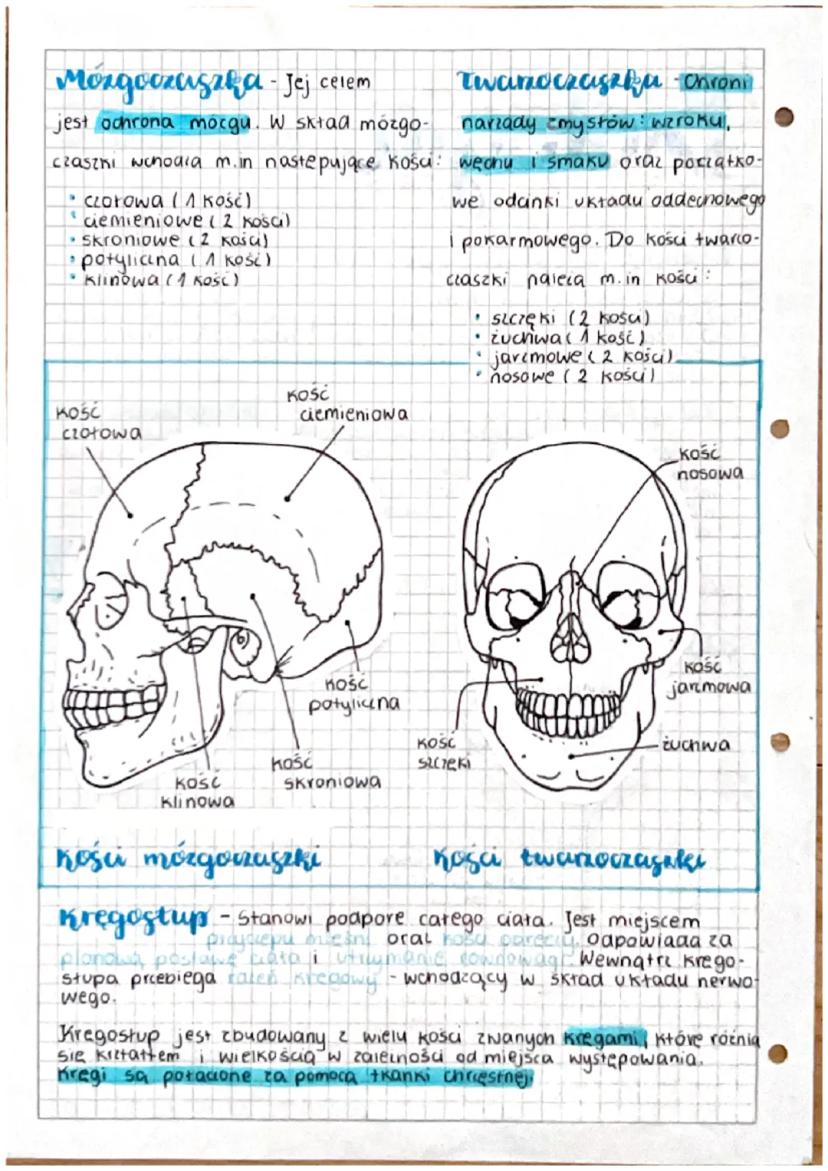 Mózgoczaszka - Jej celem
jest ochrona mózgu. W skład mózgo-
czaszki wchodzą m.in następujące kości:
• czołowa (1 kość)
• ciemieniowe (2 kości)
• skroniowe (2 kości)
• potyliczna (1 kość)
• klinowa (1 kość)
Twarzoczaszka - Chroni
narządy zmysłów: wzroku,
węchu i smaku oraz początko-
we odcinki układu oddechowego
i pokarmowego. Do kości twarzo-
czaszki należą m.in kości:
• szczęki (2 kości)
• żuchwa (1 kość)
• jarzmowe (2 kości)
• nosowe (2 kości)
kość
czołowa
kość
ciemieniowa
kość
potyliczna
kość
skroniowa
kość
klinowa
kość
nosowa
kość
jarzmowa
kość
szczęki
żuchwa
Kości mózgoczaszki
Kości twarzoczaszki
Kręgosłup - Stanowi podporę całego ciała. Jest miejscem
przyczepu mięśni oraz kości odpowiada za
pionową postawę ciała i utrzymanie równowagi. Wewnątrz kręgo-
słupa przebiega rdzeń kręgowy - wchodzący w skład układu nerwo-
wego.
Kręgosłup jest zbudowany z wielu kości zwanych kręgami, które różnią
się kształtem i wielkością w zależności od miejsca występowania.
Kręgi są połączone za pomocą tkanki chrzęstnej.